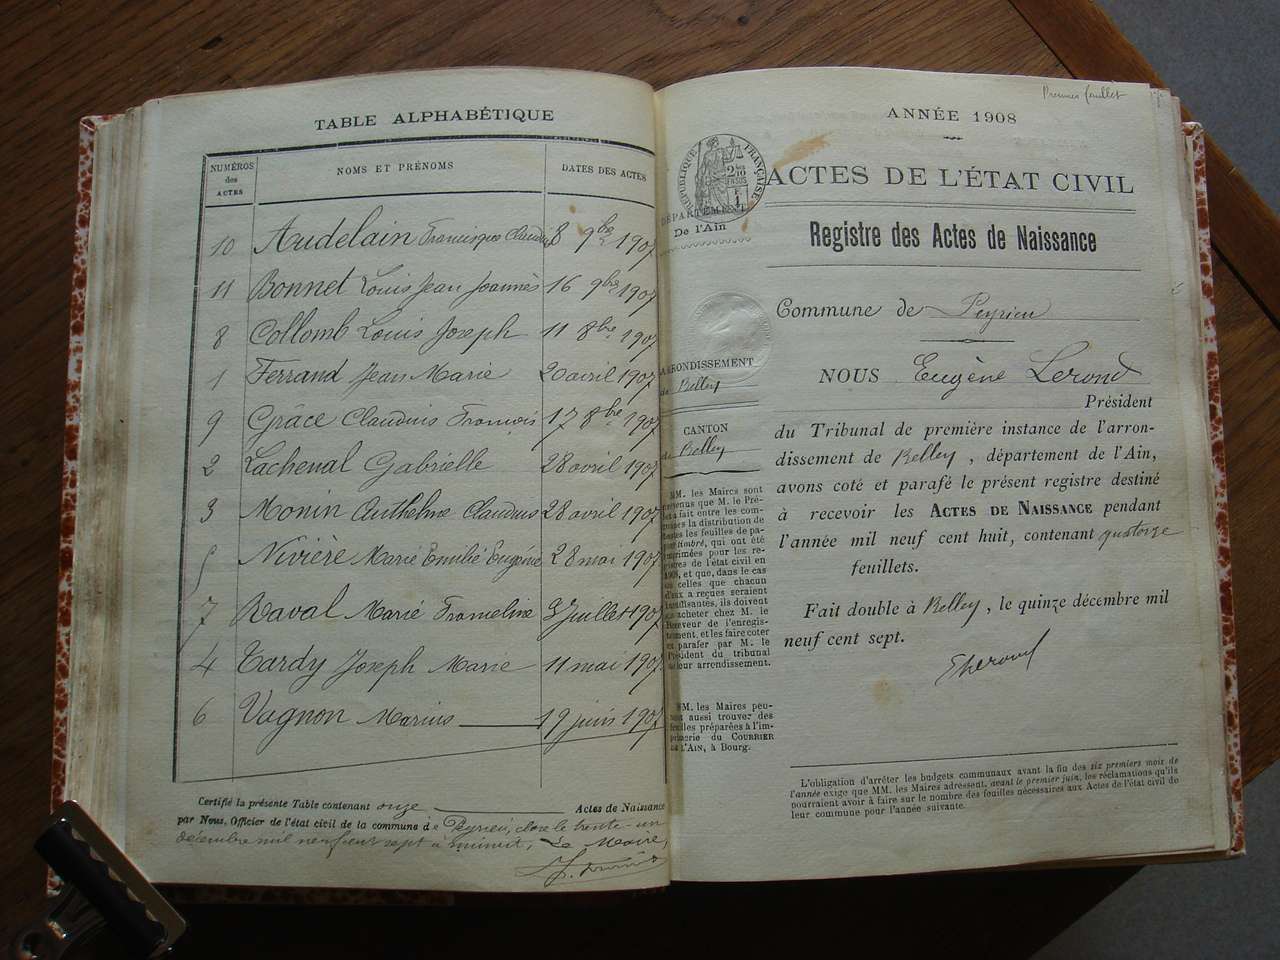 TABLE ALPHABÉTIQUE
NUMÉROS des ACTES
NOMS ET PRÉNOMS
DATES DES ACTES
10 Audelain Francisque Claudius 8 9bre 1907
11 Bonnet Louis Jean Joannès 16 9bre 1907
8 Collomb Louis Joseph 11 8bre 1907
1 Ferrand Jean Marie 20 avril 1907
9 Grâce Claudius François 17 8bre 1907
2 Lachenal Gabrielle 28 avril 1907
3 Monin Anthelme Claudius 28 avril 1907
5 Nivière Marie Emilie Eugénie 28 mai 1907
7 Raval Marie Frameline 3 Juillet 1907
4 Tardy Joseph Marie 11 mai 1907
6 Vagnon Marius 19 juin 1907
Certifié la présente Table contenant onze Actes de Naissance
par Nous, Officier de l'état civil de la commune de Peyrieu, close le trente-un
décembre mil neuf cent sept à minuit, Le Maire,
Premier feuillet
ANNÉE 1908
RÉPUBLIQUE FRANÇAISE
ACTES DE L'ÉTAT CIVIL
DÉPARTEMENT
De l'Ain
Registre des Actes de Naissance
Commune de Peyrieu
ARRONDISSEMENT
de Belley
CANTON
de Belley
NOUS Eugène Lerond
Président
du Tribunal de première instance de l'arron-
dissement de Belley, département de l'Ain,
avons coté et parafé le présent registre destiné
à recevoir les ACTES DE NAISSANCE pendant
l'année mil neuf cent huit, contenant quatorze
feuillets.
Fait double à Belley, le quinze décembre mil
neuf cent sept.
MM. les Maires sont
prévenus que M. le Pré-
fet a fait entre les com-
munes la distribution de
toutes les feuilles de pa-
pier timbré, qui ont été
imprimées pour les re-
gistres de l'état civil en
1908, et que, dans le cas
où celles que chacun
d'eux a reçues seraient
insuffisantes, ils doivent
en acheter chez M. le
Receveur de l'enregis-
trement, et les faire coter
et parafer par M. le
Président du tribunal
de leur arrondissement.
MM. les Maires peu-
vent aussi trouver des
feuilles préparées à l'im-
primerie du COURRIER
DE L'AIN, à Bourg.
L'obligation d'arrêter les budgets communaux avant la fin des six premiers mois de
l'année exige que MM. les Maires adressent, avant le premier juin, les réclamations qu'ils
pourraient avoir à faire sur le nombre des feuilles nécessaires aux Actes de l'état civil de
leur commune pour l'année suivante.